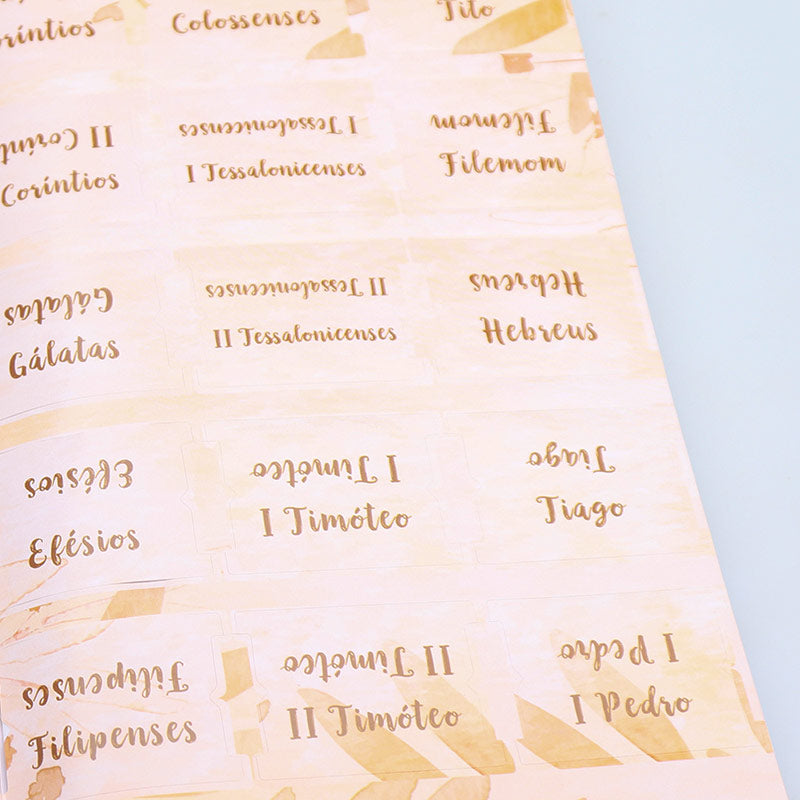 oríntios
Colossenses
Tito
II Corínt
Coríntios
I Tessalonicenses
I Tessalonicenses
Filemom
Filemom
Gálatas
Gálatas
II Tessalonicenses
II Tessalonicenses
Hebreus
Hebreus
Efésios
Efésios
I Timóteo
I Timóteo
Tiago
Tiago
Filipenses
Filipenses
II Timóteo
II Timóteo
I Pedro
I Pedro